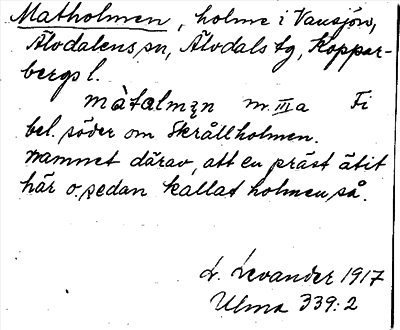 Matholmen, holme i Vansjön,
Älvdalens sn, Älvdals tg, Koppar-
bergs l.
màtalmęn m. III a Fi
bel. söder om Skrållholmen.
Namnet därav, att en präst ätit
här o. sedan kallat holmen så.
L. Levander 1917
Ulma 339:2